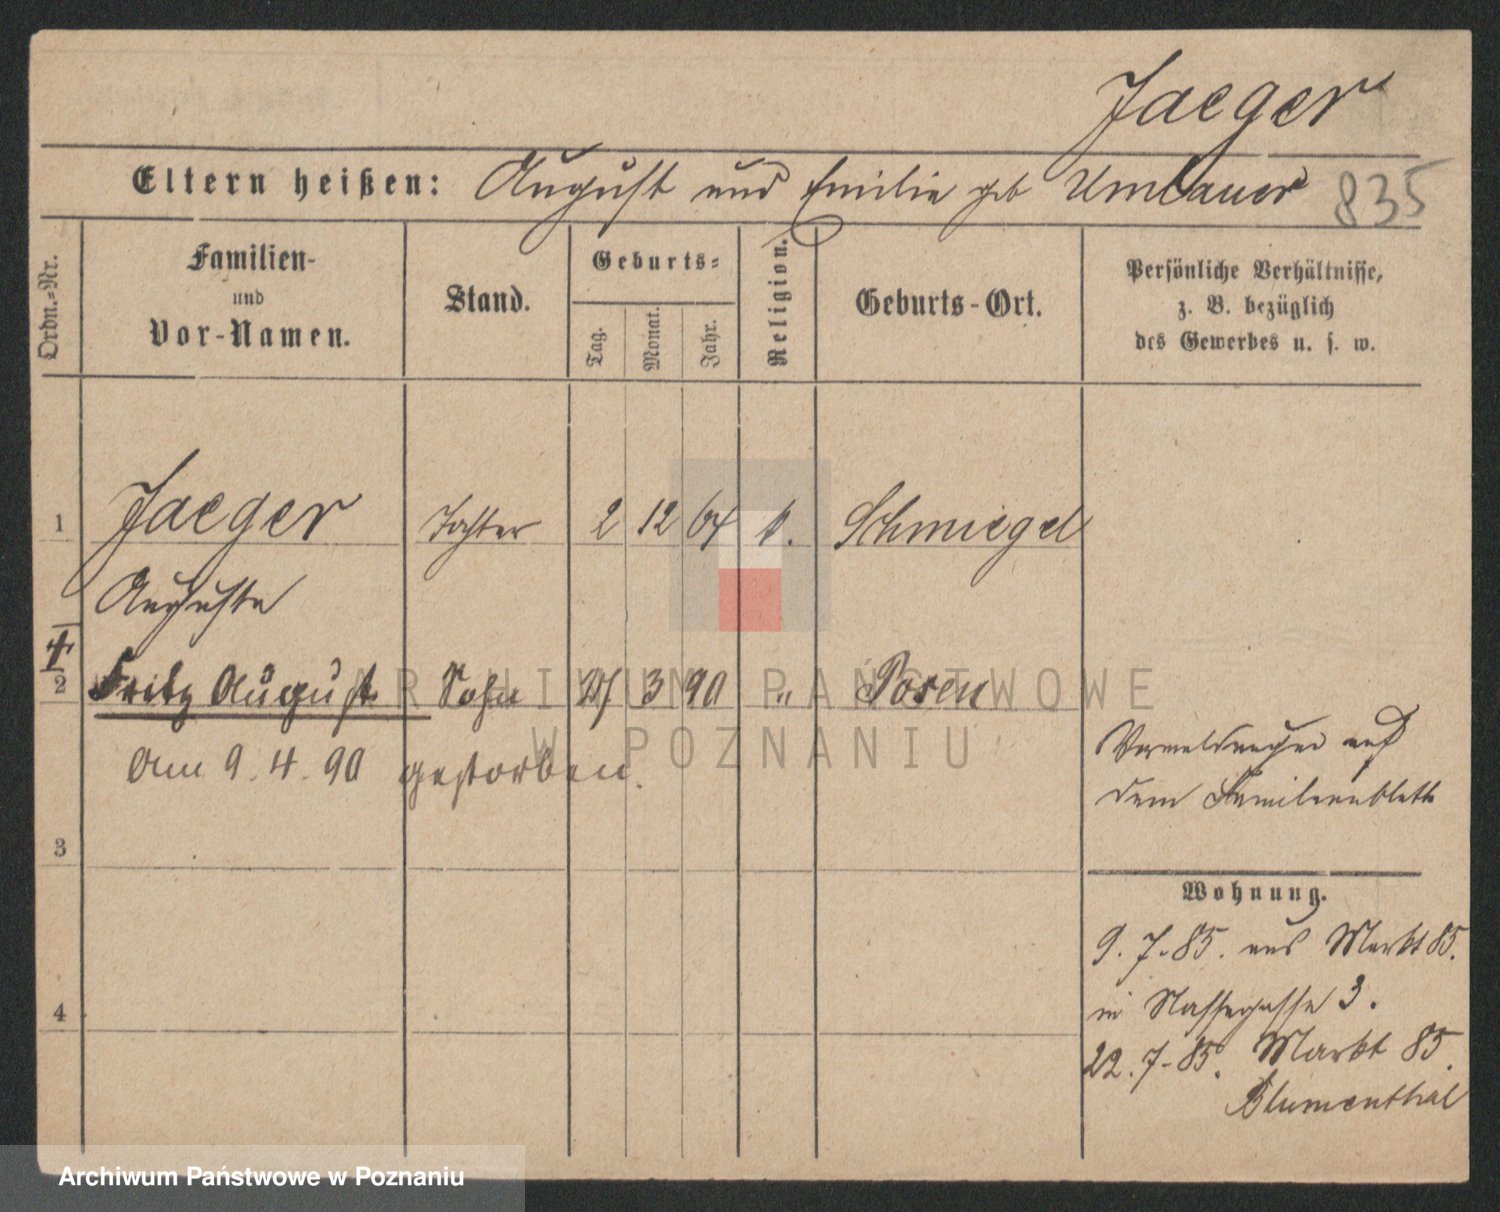 Jaeger
Eltern heißen: August und Emilie geb Umlauer
835
Ordn.=Nr.
Familien-
und
Vor-Namen.
Stand.
Geburts=
Tag.
Monat.
Jahr.
Religion.
Geburts-Ort.
Persönliche Verhältnisse,
z. B. bezüglich
des Gewerbes u. s. w.
1 Jaeger Tochter 2 12 64 Schmiegel
Auguste
2 Fritz August Sohn 27 3 90 " Posen
Am 9. 4. 90 gestorben.
Vermeldungen auf
dem Familienblatt
3
Wohnung.
9. 7. 85. aus Markt 85.
in Nassegasse 3.
4
22. 7. 85. Markt 85.
Blumenthal
ARCHIWUM PAŃSTWOWE
W POZNANIU
Archiwum Państwowe w Poznaniu